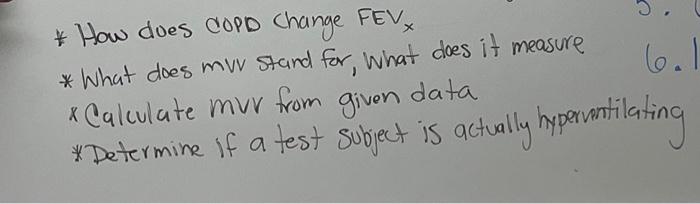 * How does COPD change FEVx
* What does mvv stand for, what does it measure
* Calculate mvv from given data
* Determine if a test subject is actually hyperventilating
5.
6.1